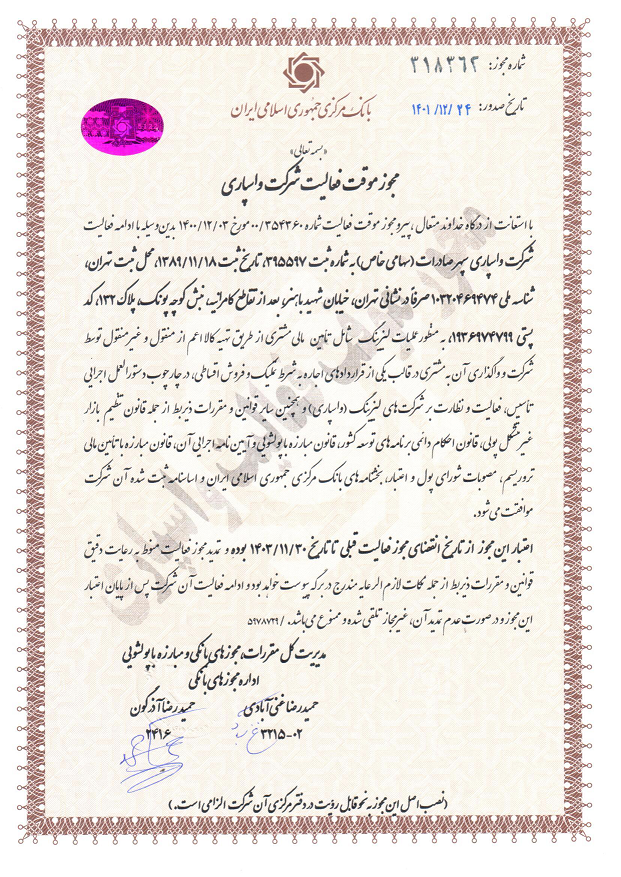 شماره مجوز: ۳۱۸۳۶۲
تاریخ صدور: ۱۴۰۱/۱۲/۲۴
بانک مرکزی جمهوری اسلامی ایران
«بسمه تعالی»
مجوز موقت فعالیت شرکت واسپاری
با استعانت از درگاه خداوند متعال، پیرو مجوز موقت فعالیت شماره ۰۰/۳۵۴۳۶۰ مورخ ۱۴۰۰/۱۲/۰۳ بدین وسیله با ادامه فعالیت
شرکت واسپاری سپهر صادرات (سهامی خاص) به شماره ثبت ۳۹۵۵۹۷، تاریخ ثبت ۱۳۸۹/۱۱/۱۸، محل ثبت تهران،
شناسه ملی ۱۰۳۲۰۴۶۹۴۷۴ صرفاً در نشانی تهران، خیابان شهید باهنر، بعد از تقاطع کامرانیه، نبش کوچه پونک، پلاک ۱۳۲، کد
پستی ۱۹۳۶۹۷۴۷۹۹، به منظور عملیات لیزینگ شامل تأمین مالی مشتری از طریق تهیه کالا اعم از منقول و غیرمنقول توسط
شرکت و واگذاری آن به مشتری در قالب یکی از قراردادهای اجاره به شرط تملیک و فروش اقساطی، در چارچوب دستورالعمل اجرایی
تأسیس، فعالیت و نظارت بر شرکت‌های لیزینگ (واسپاری) و همچنین سایر قوانین و مقررات ذیربط از جمله قانون تنظیم بازار
غیرمتشکل پولی، قانون احکام دائمی برنامه‌های توسعه کشور، قانون مبارزه با پولشویی و آیین نامه اجرایی آن، قانون مبارزه با تأمین مالی
تروریسم، مصوبات شورای پول و اعتبار، بخشنامه‌های بانک مرکزی جمهوری اسلامی ایران و اساسنامه ثبت شده آن شرکت
موافقت می‌شود.
اعتبار این مجوز از تاریخ انقضای مجوز فعالیت قبلی تا تاریخ ۱۴۰۳/۱۱/۳۰ بوده و تمدید مجوز فعالیت منوط به رعایت دقیق
قوانین و مقررات ذیربط از جمله نکات لازم الرعایه مندرج در برگه پیوست خواهد بود و ادامه فعالیت آن شرکت پس از پایان اعتبار
این مجوز و در صورت عدم تمدید آن، غیرمجاز تلقی شده و ممنوع می‌باشد. /۵۹۷۸۷۲۹
مدیریت کل مقررات، مجوزهای بانکی و مبارزه با پولشویی
اداره مجوزهای بانکی
حمیدرضا غنی‌آبادی حمیدرضا آذرگون
۳۲۱۵-۰۲ ۲۴۱۶
(نصب اصل این مجوز به نحو قابل رؤیت در دفتر مرکزی آن شرکت الزامی است.)
مجوز موقت فعالیت واسپاری